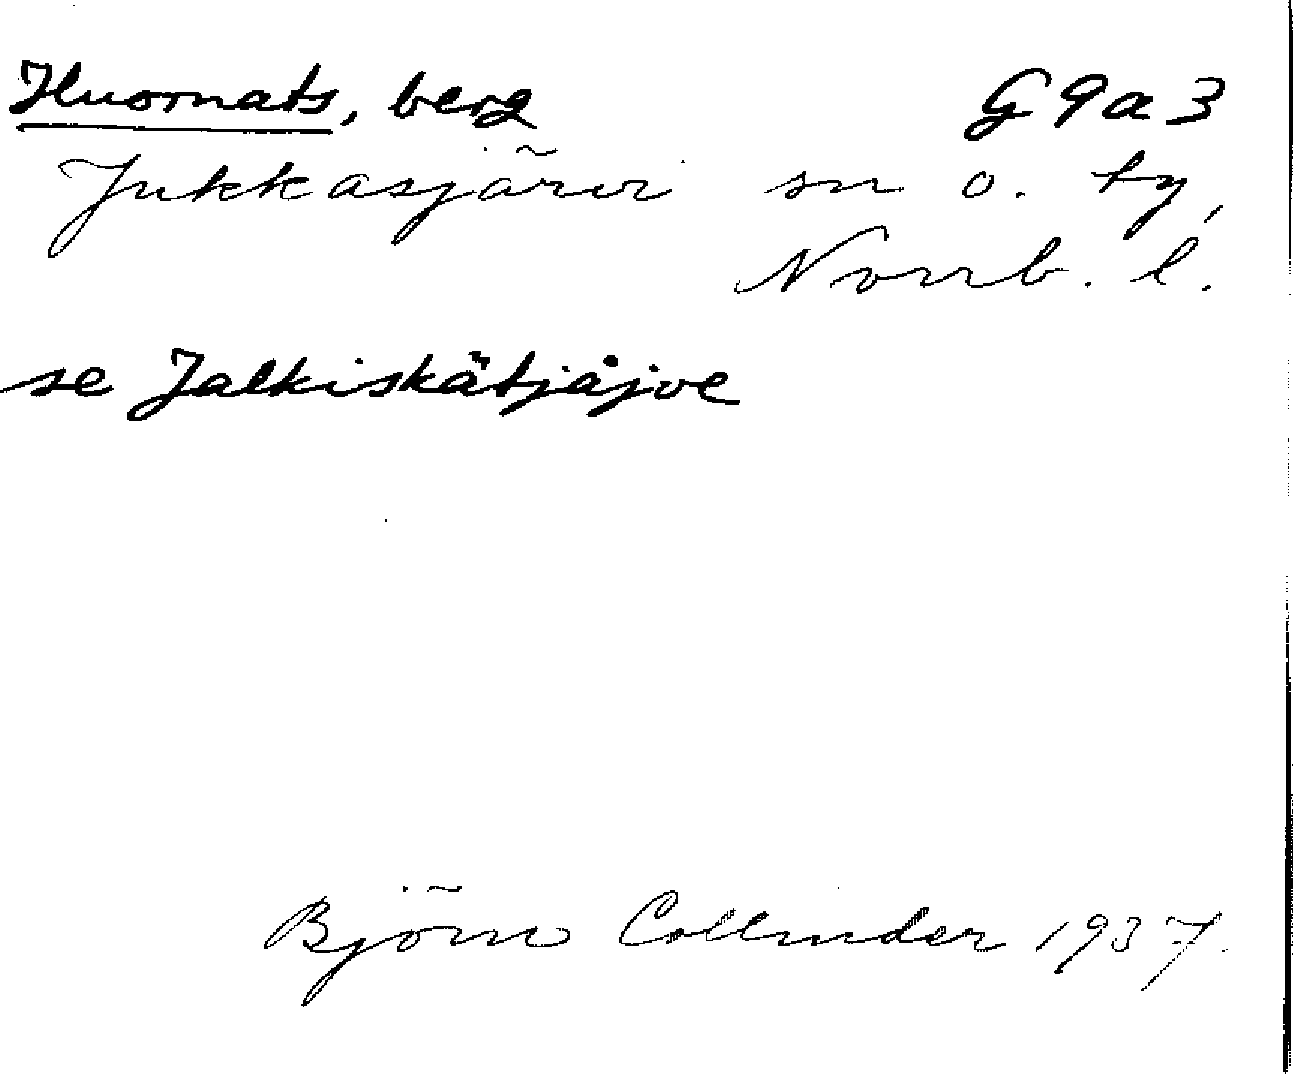 Huornats, berg G9a3
Jukkasjärvi sn o. ty,
Norrb. l.
se Jalkiskåtjåjve
Björn Collinder 1937.